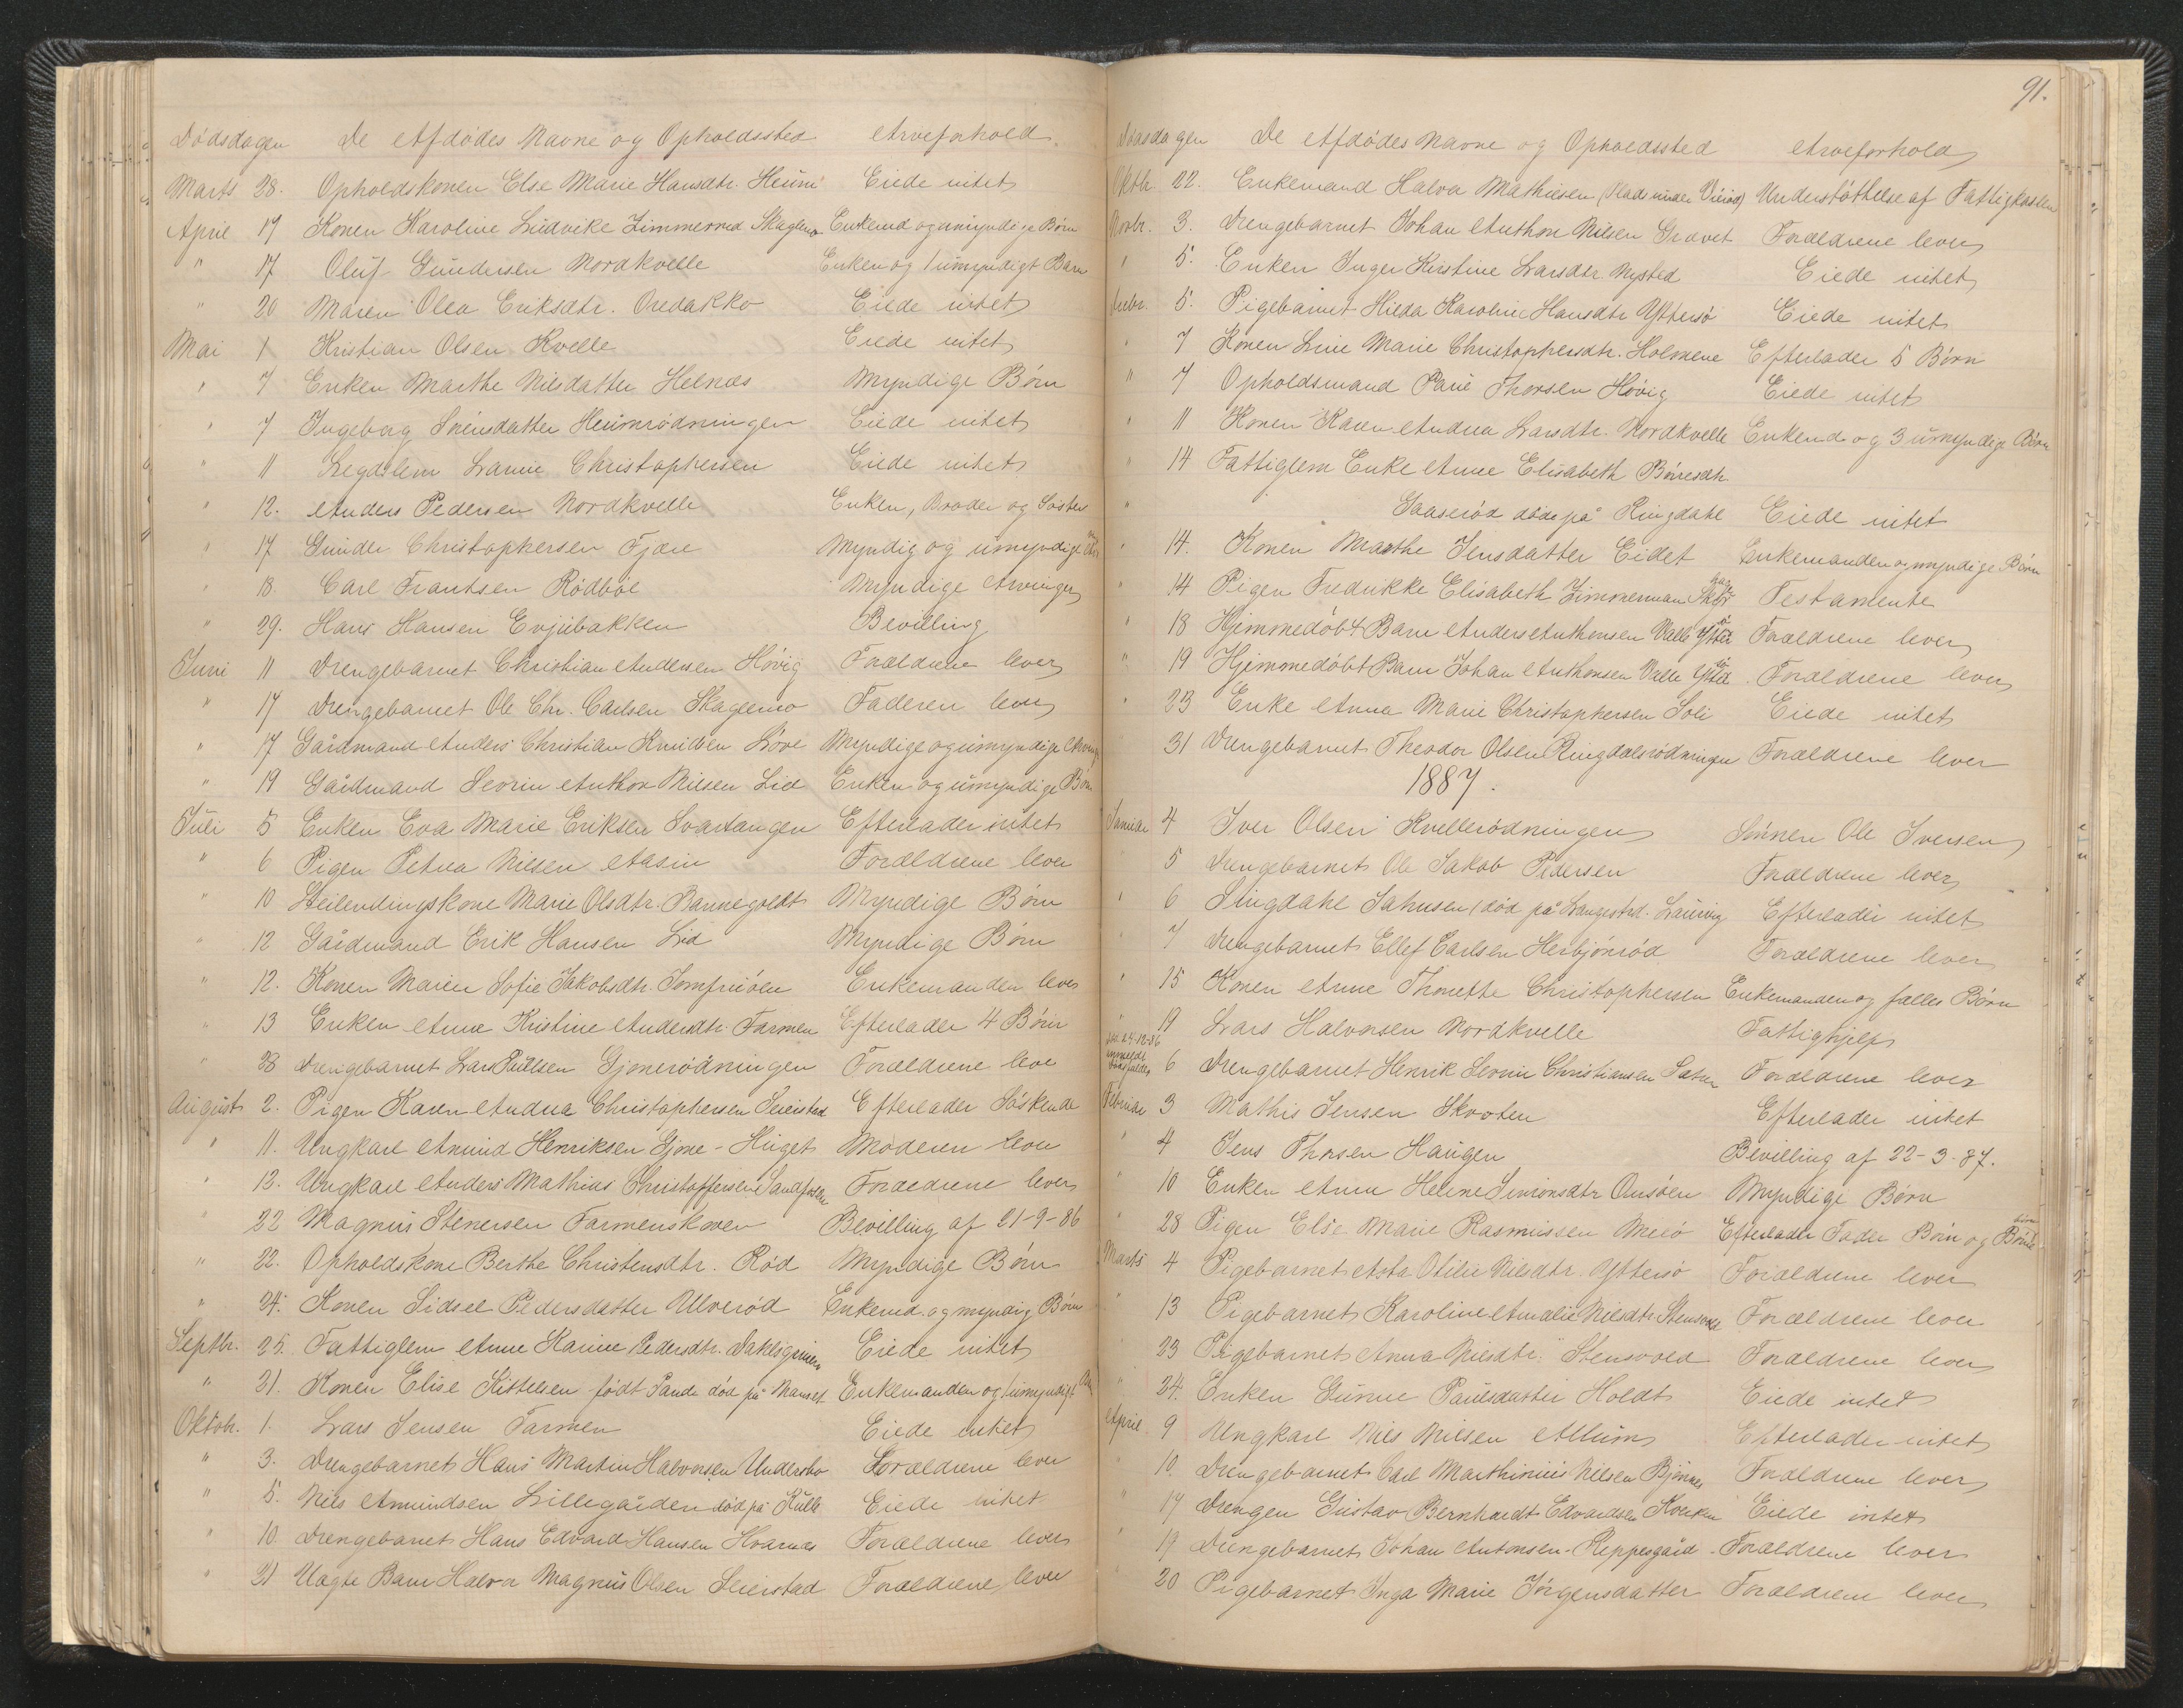 Dødsdagen De Afdødes Navne og Opholdssted Arveforhold
Marts 28. Opholdskonen Else Marie Hansdtr. Heum Eiede intet
April 17 Konen Karoline Ludvike Zimmermed Skaglmo Enkemd og umyndige Børn
" 17 Oluf Gundersen Nordkvelle Enken og 1 umyndigt Barn
" 20 Maren Olea Eriksdtr. Eiede intet
Mai 1 Kristian Olsen Kvelle Eiede intet
" 7 Enken Marthe Nilsdatter Helnæs Myndige Børn
" 7 Ingeborg Sørensdatter Heumrødningen Eiede intet
" 11 Legdslem Larine Christophersen Eiede intet
" 12. Anders Pedersen Nordkvelle Enken, Broder og Søster
" 17 Gunder Christophersen Fjære Myndig og umyndige
" 18 Carl Frantsen Rødbøl Myndige Arvinger
" 29. Hans Hansen Evjubakken Bevilling
Juni 11 Drengebarnet Christian Andersen Høvig Forældrene lever
" 17 Drengebarnet Ole Chr. Carlsen Skagelmo Faderen lever
" 17 Gårdmand Anders Christian Knudsen Løve Myndige og umyndige Arvinge
" 19 Gårdmand Severin Anthon Nilsen Lid Enken og umyndige Børn
Juli 5 Enken Eva Marie Eriksen Svartangen Efterlader intet
" 6 Pigen Petrea Nilsen Forældrene lever
" 10 Marie Olsdtr. Bannegoldt Myndige Børn
" 12 Gårdmand Erik Hansen Lid Myndige Børn
" 12. Konen Maren Sofie Jakobsdtr. Jomfruøen Enkemanden lever
" 13 Enken Anne Kristine Andersdtr. Farmen Efterlader 4 Børn
" 28 Drengebarnet Lars Paulsen Gjonerødningen Forældrene leve
August 2. Pigen Karen Andrea Christophersen Seierstad Efterlader Søskende
" 11. Ungkarl Amund Henriksen Gjone-Huget Moderen lever
" 12. Ungkarl Anders Mathias Christoffersen Forældrene lever
" 22 Magnus Stenersen Farmenskoven Bevilling af 21-9-86
" 22. Opholdskone Berthe Christensdtr. Rød Myndige Børn
" 24. Konen Sidsel Pedersdatter Ulverød Enkemd. og myndig Børn
Septbr. 25. Fattiglem Anne Karine Pedersdtr. Eiede intet
" 21. Konen Elise Kittelsen født Sande død på Manset Enkemanden og 1 umyndigt
Oktobr. 1. Lars Jensen Farmen Eiede intet
" 3. Drengebarnet Hans Martin Halvorsen Undersbo Forældrene lever
" 5. Nils Amundsen Lillegården død på Eiede intet
" 10. Drengebarnet Hans Edvard Hansen Hvarnes Forældrene lever
" 21 Uægte Barn Halvor Magnus Olsen Seierstad Forældrene lever
91.
Dødsdagen De Afdødes Navne og Opholdssted Arveforhold
Oktb. 22. Enkemand Halvor Mathisen (Plads under) Understøttelse af Fattigkassen
Novbr. 3. Drengebarnet Johan Anthon Nilsen Grævet Forældrene lever
" 5. Enken Inger Kirstine Larsdtr. Nysted Eiede intet
5. Pigebarnet Hilda Karoline Hansdtr Yttersø Eiede intet
" 7 Konen Line Marie Christophersdtr. Holmene Efterlader 5 Børn
" 7 Opholdsmand Thorsen Høvig Eiede intet
" 11 Konen Karen Andrea Larsdtr. Nordkvelle Enkemd. og 3 umyndige Børn
" 14 Fattiglem Enke Anne Elisabeth Børresdtr.
" Saaserød døde på Ringdahl Eiede intet
" 14. Konen Marthe Jensdatter Eidet Enkemanden og myndige Børn
" 14 Pigen Fredrikke Elisabeth Zimmerman Testamente
" 18 Hjemmedøbt Barn Anders Anthonsen Valle Forældrene lever
" 19 Hjemmedøbt Barn Johan Anthonsen Valle Forældrene lever
" 23 Enke Anna Marie Christophersen Soli Eiede intet
31 Drengebarnet Theodor Olsen Ringdalsrødningen Forældrene lever
1887.
Januar 4 Iver Olsen Kvellerødningen Sønnen Ole Iversen
5 Drengebarnet Ole Jakob Pedersen Forældrene lever
" 6 Lingdahl Jahnsen (død på Langestrd. Laurvig Efterlader intet
7 Drengebarnet Ellef Carlsen Herbjønrød Forældrene lever
" 15 Konen Anne Thonette Christophersen Enkemanden og fælles Børn
" 19 Lars Halvorsen Nordkvelle Fattighjelp
6 Drengebarnet Henrik Severin Christiansen Forældrene lever
Februar 3 Mathis Jensen Skooten Efterlader intet
" 4 Jens Thorsen Haugen Bevilling af 22-3-87.
" 10 Enken Anne Helene Simonsdtr Myndige Børn
" 28 Pigen Else Marie Rasmussen Melø Efterlader Fader Børn og Børnebørn
Marts 4 Pigebarnet Asta Otilie Nilsdtr. Yttersø Forældrene lever
" 13 Pigebarnet Karoline Amalie Nilsdtr. Forældrene lever
" 23 Pigebarnet Anna Nilsdtr. Stensvold Forældrene lever
" 24. Enken Gunne Paulsdatter Holdt Eiede intet
April 9 Ungkarl Nils Nilsen Allum Efterlader intet
" 10. Drengebarnet Carl Marthinius Nilsen Bjønnes Forældrene lever
" 17 Drengen Gustav Bernhardt Edvardsen Eiede intet
" 19 Drengebarnet Johan Antonsen Reppesgård Forældrene lever
" 20 Pigebarnet Inga Marie Jørgensdatter Forældrene lever